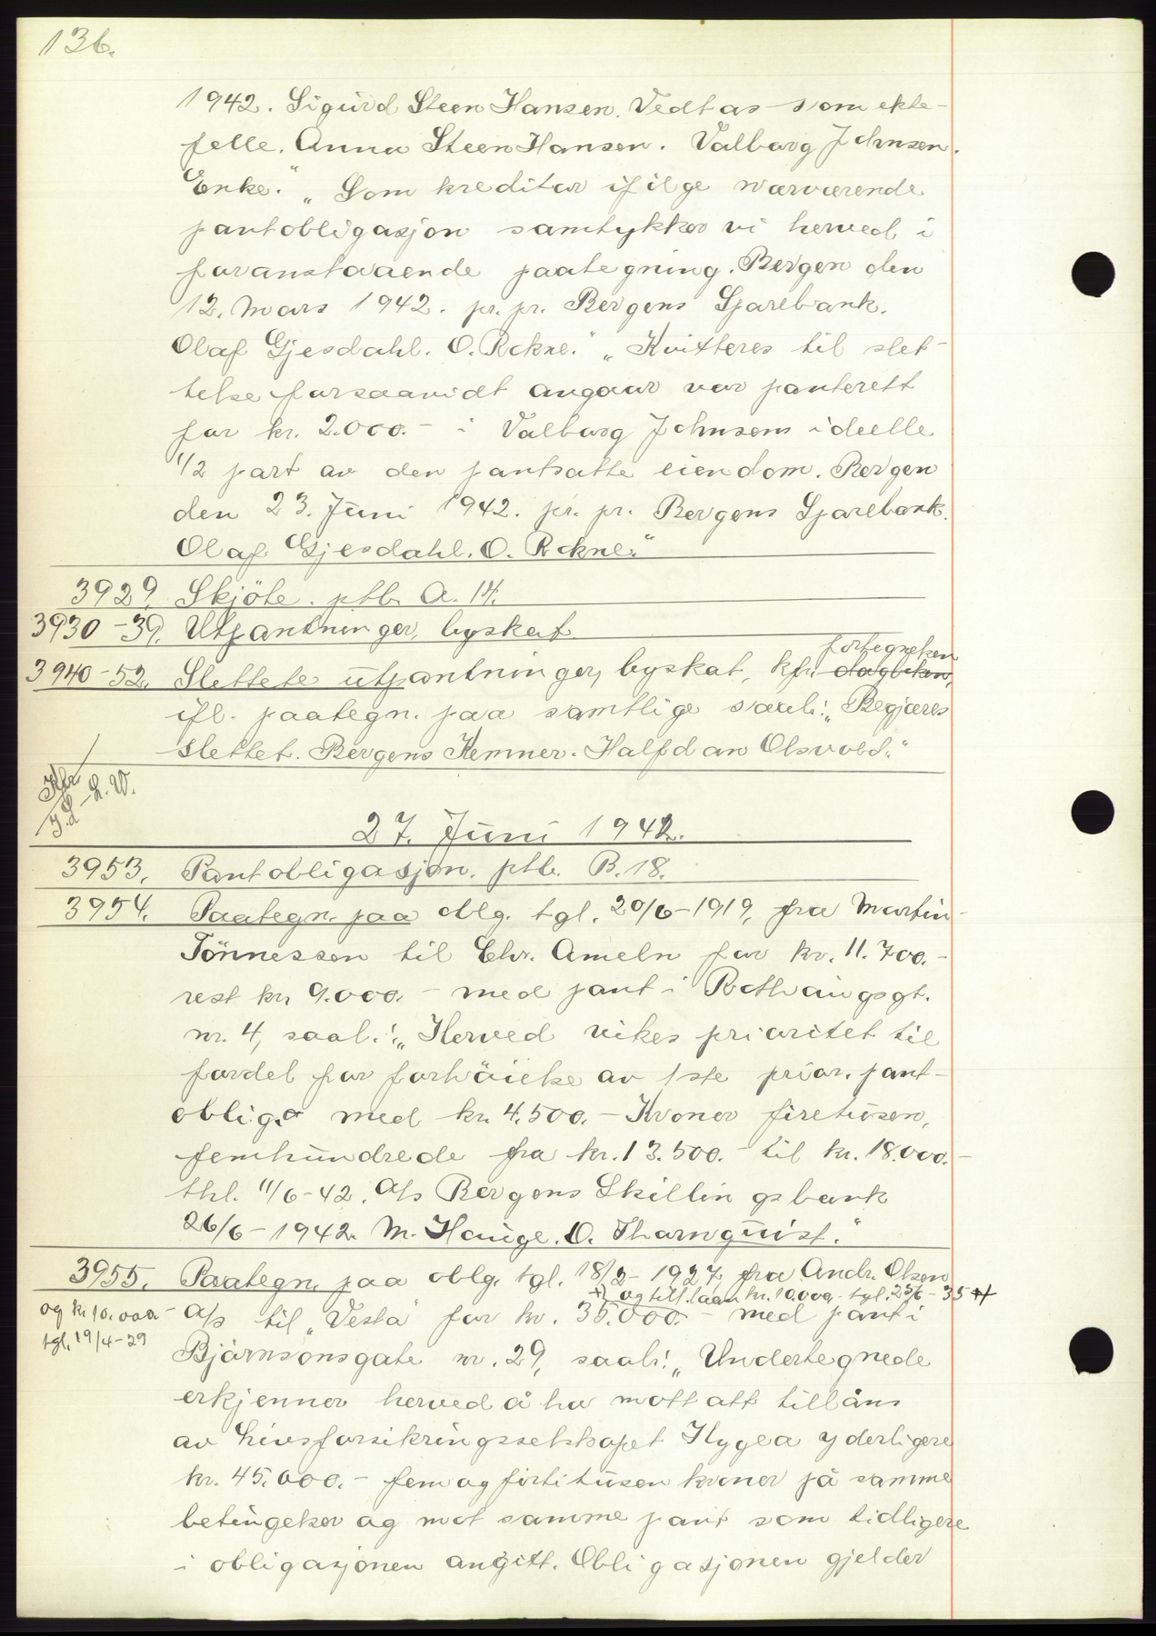 136.
1942. Sigurd Steen Hansen. Vedtas som ekte-
felle. Anna Steen Hansen. Valborg Johnsen.
Enke." „Som kreditor ifølge nærværende
pantobligasjon samtykker vi herved i
foranstaaende paategning. Bergen den
12. mars 1942. pr. pr. Bergens Sparebank.
Olaf Gjesdahl. O. Rekne." „Kvitteres til slet-
telse forsaavidt angaar vor panterett
for kr. 2.000.- i Valborg Johnsens ideelle
1/2 part av den pantsatte eiendom. Bergen
den 23. Juni 1942. pr. pr. Bergens Sparebank.
Olaf Gjesdahl. O. Rekne."
3929. Skjöte. ptb. A. 14.
3930-39. Utpantninger, byskat.
fortegnelsen
3940-52. Slettete utpantninger, byskat, kfr. dagboken,
ifl. paategn. paa samtlige saal.: „Begjæres
slettet. Bergens Kemner. Halfdan Olsvold."
Kfr
J.L - L.W.
27. Juni 1942.
3953. Pantobligasjon. ptb. B.18.
3954. Paategn. paa oblg. tgl. 20/6-1919, fra Martin
Tönnessen til Chr. Ameln for kr. 11.700.-
rest kr. 9.000.- med pant i Rothaugsgt.
nr. 4, saal.: „Herved vikes prioritet til
fordel for forhöielse av 1ste prior. pant-
oblig. med kr. 4.500.- Kroner firetusen,
femhundrede fra kr. 13.500.- til kr. 18.000.-
thl. 11/6-42. A/s Bergens Skillingsbank
26/6-1942. M. Hauge. O. Thornquist."
3955. Paategn. paa oblg. tgl. 18/2-1927 fra Andr. Olsen
+) og till.laan kr. 10.000.- tgl. 25/6-35 +)
og kr. 10.000.- A/s til „Vesta" for kr. 35.000.- med pant i
tgl. 19/4-29
Bjørnsonsgate nr. 29, saal.: „Undertegnede
erkjenner herved å ha mottatt tillåns
av Livsforsikringsselskapet Hygea yderligere
kr. 45.000.- femogførtitusen kroner på samme
betingelser og mot samme pant som tidligere
i obligasjonen angitt. Obligasjonen gjelder